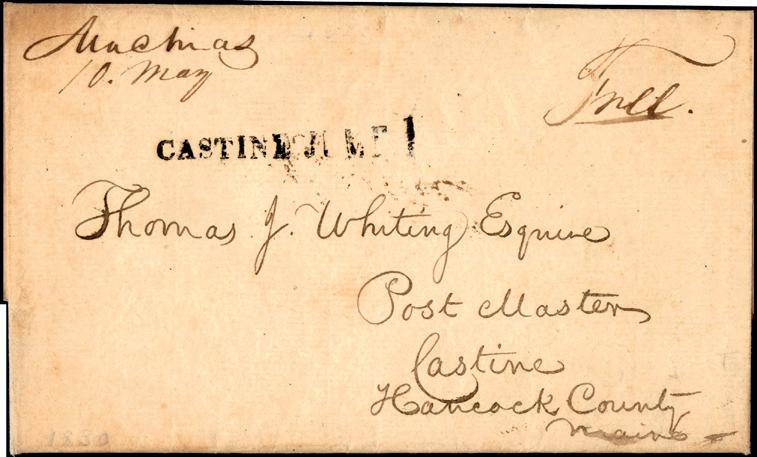 Machias
10. May
Free.
CASTINE
Thomas J. Whiting Esquire
Post Master
Castine
Hancock County
Maine
1830